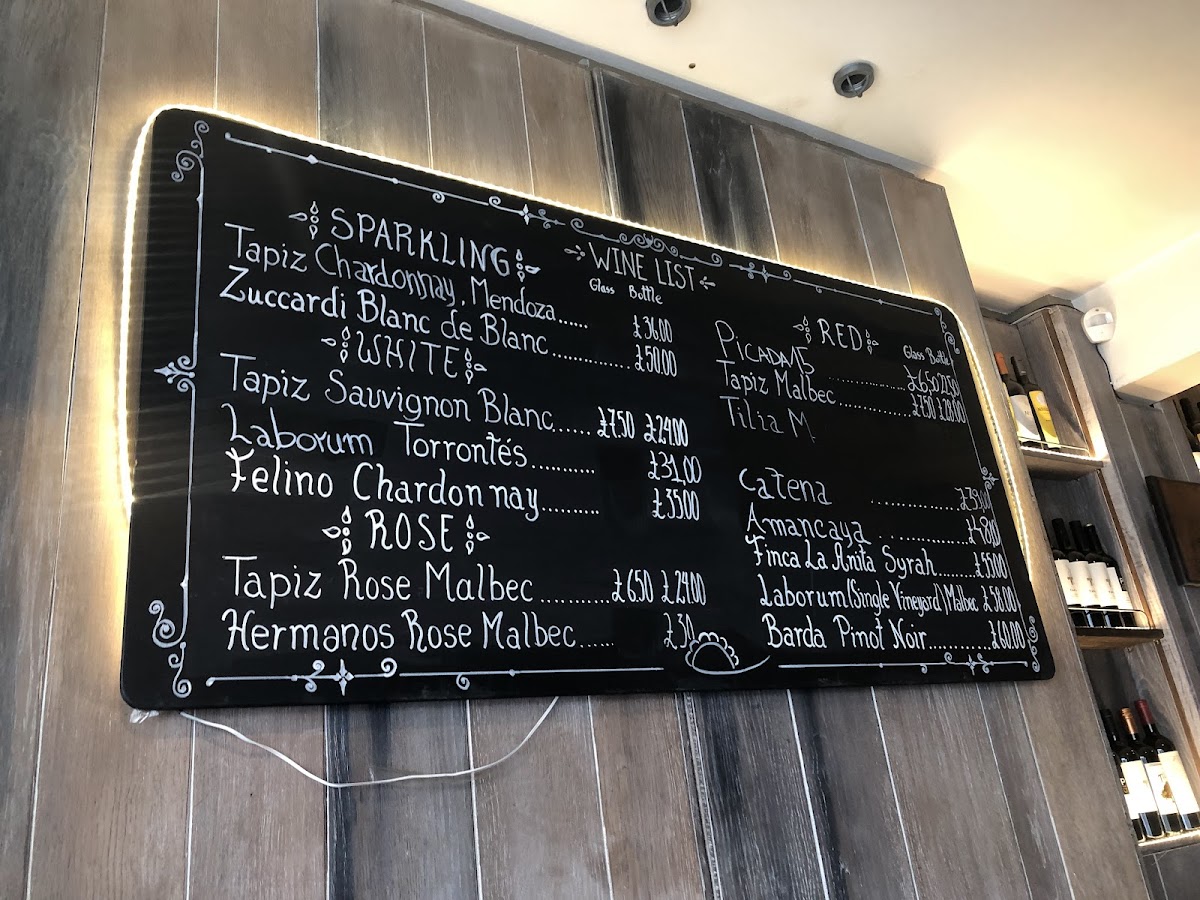 SPARKLING
WINE LIST
Glass Bottle
Tapiz Chardonnay, Mendoza...... £36.00
Zuccardi Blanc de Blanc............ £50.00
WHITE
Tapiz Sauvignon Blanc...... £7.50 £24.00
Laborum Torrontés........... £31,00
Felino Chardonnay.......... £35.00
ROSE
Tapiz Rose Malbec ........... £6.50 £24.00
Hermanos Rose Malbec...... £30
RED
Glass Bottle
PICADA 15 ................ £6.50
Tapiz Malbec .............. £7.50 £28.00
Tilia M
Catena ............ £39.00
Amancaya ................ £48.00
Finca La Anita Syrah........ £55.00
Laborum (Single Vineyard) Malbec £58.00
Barda Pinot Noir............ £60.00